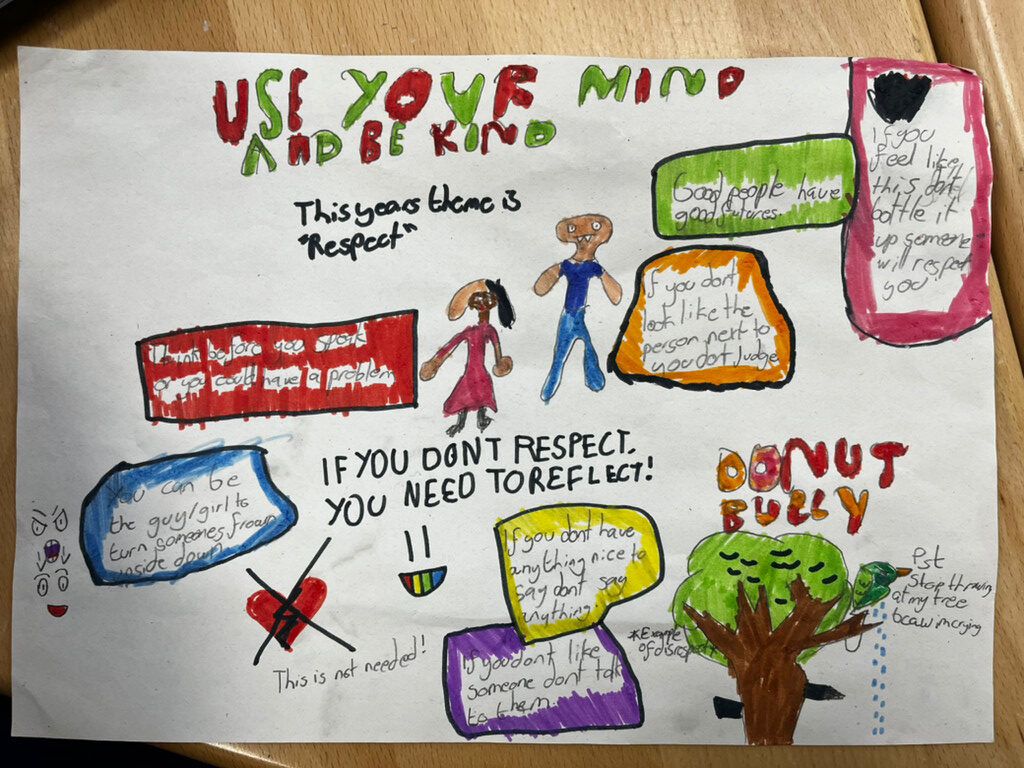 USE YOUR MIND
AND BE KIND
This years theme is
"Respect"
Good people have
good futures.
If you
feel like,
this dont
bottle it
up someone
will respect
you
If you dont
look like the
person next to
you dont Judge
Think before you speak
or you could have a problem
IF YOU DONT RESPECT.
YOU NEED TO REFLECT!
You can be
the guy/girl to
turn someones frown
inside down
DONUT
BULLY
If you dont have
anything nice to
say dont say
anything.
Pst
Stop throwin
at my tree
*Example
of disrespect*
This is not needed!
If you dont like
someone dont talk
to them.